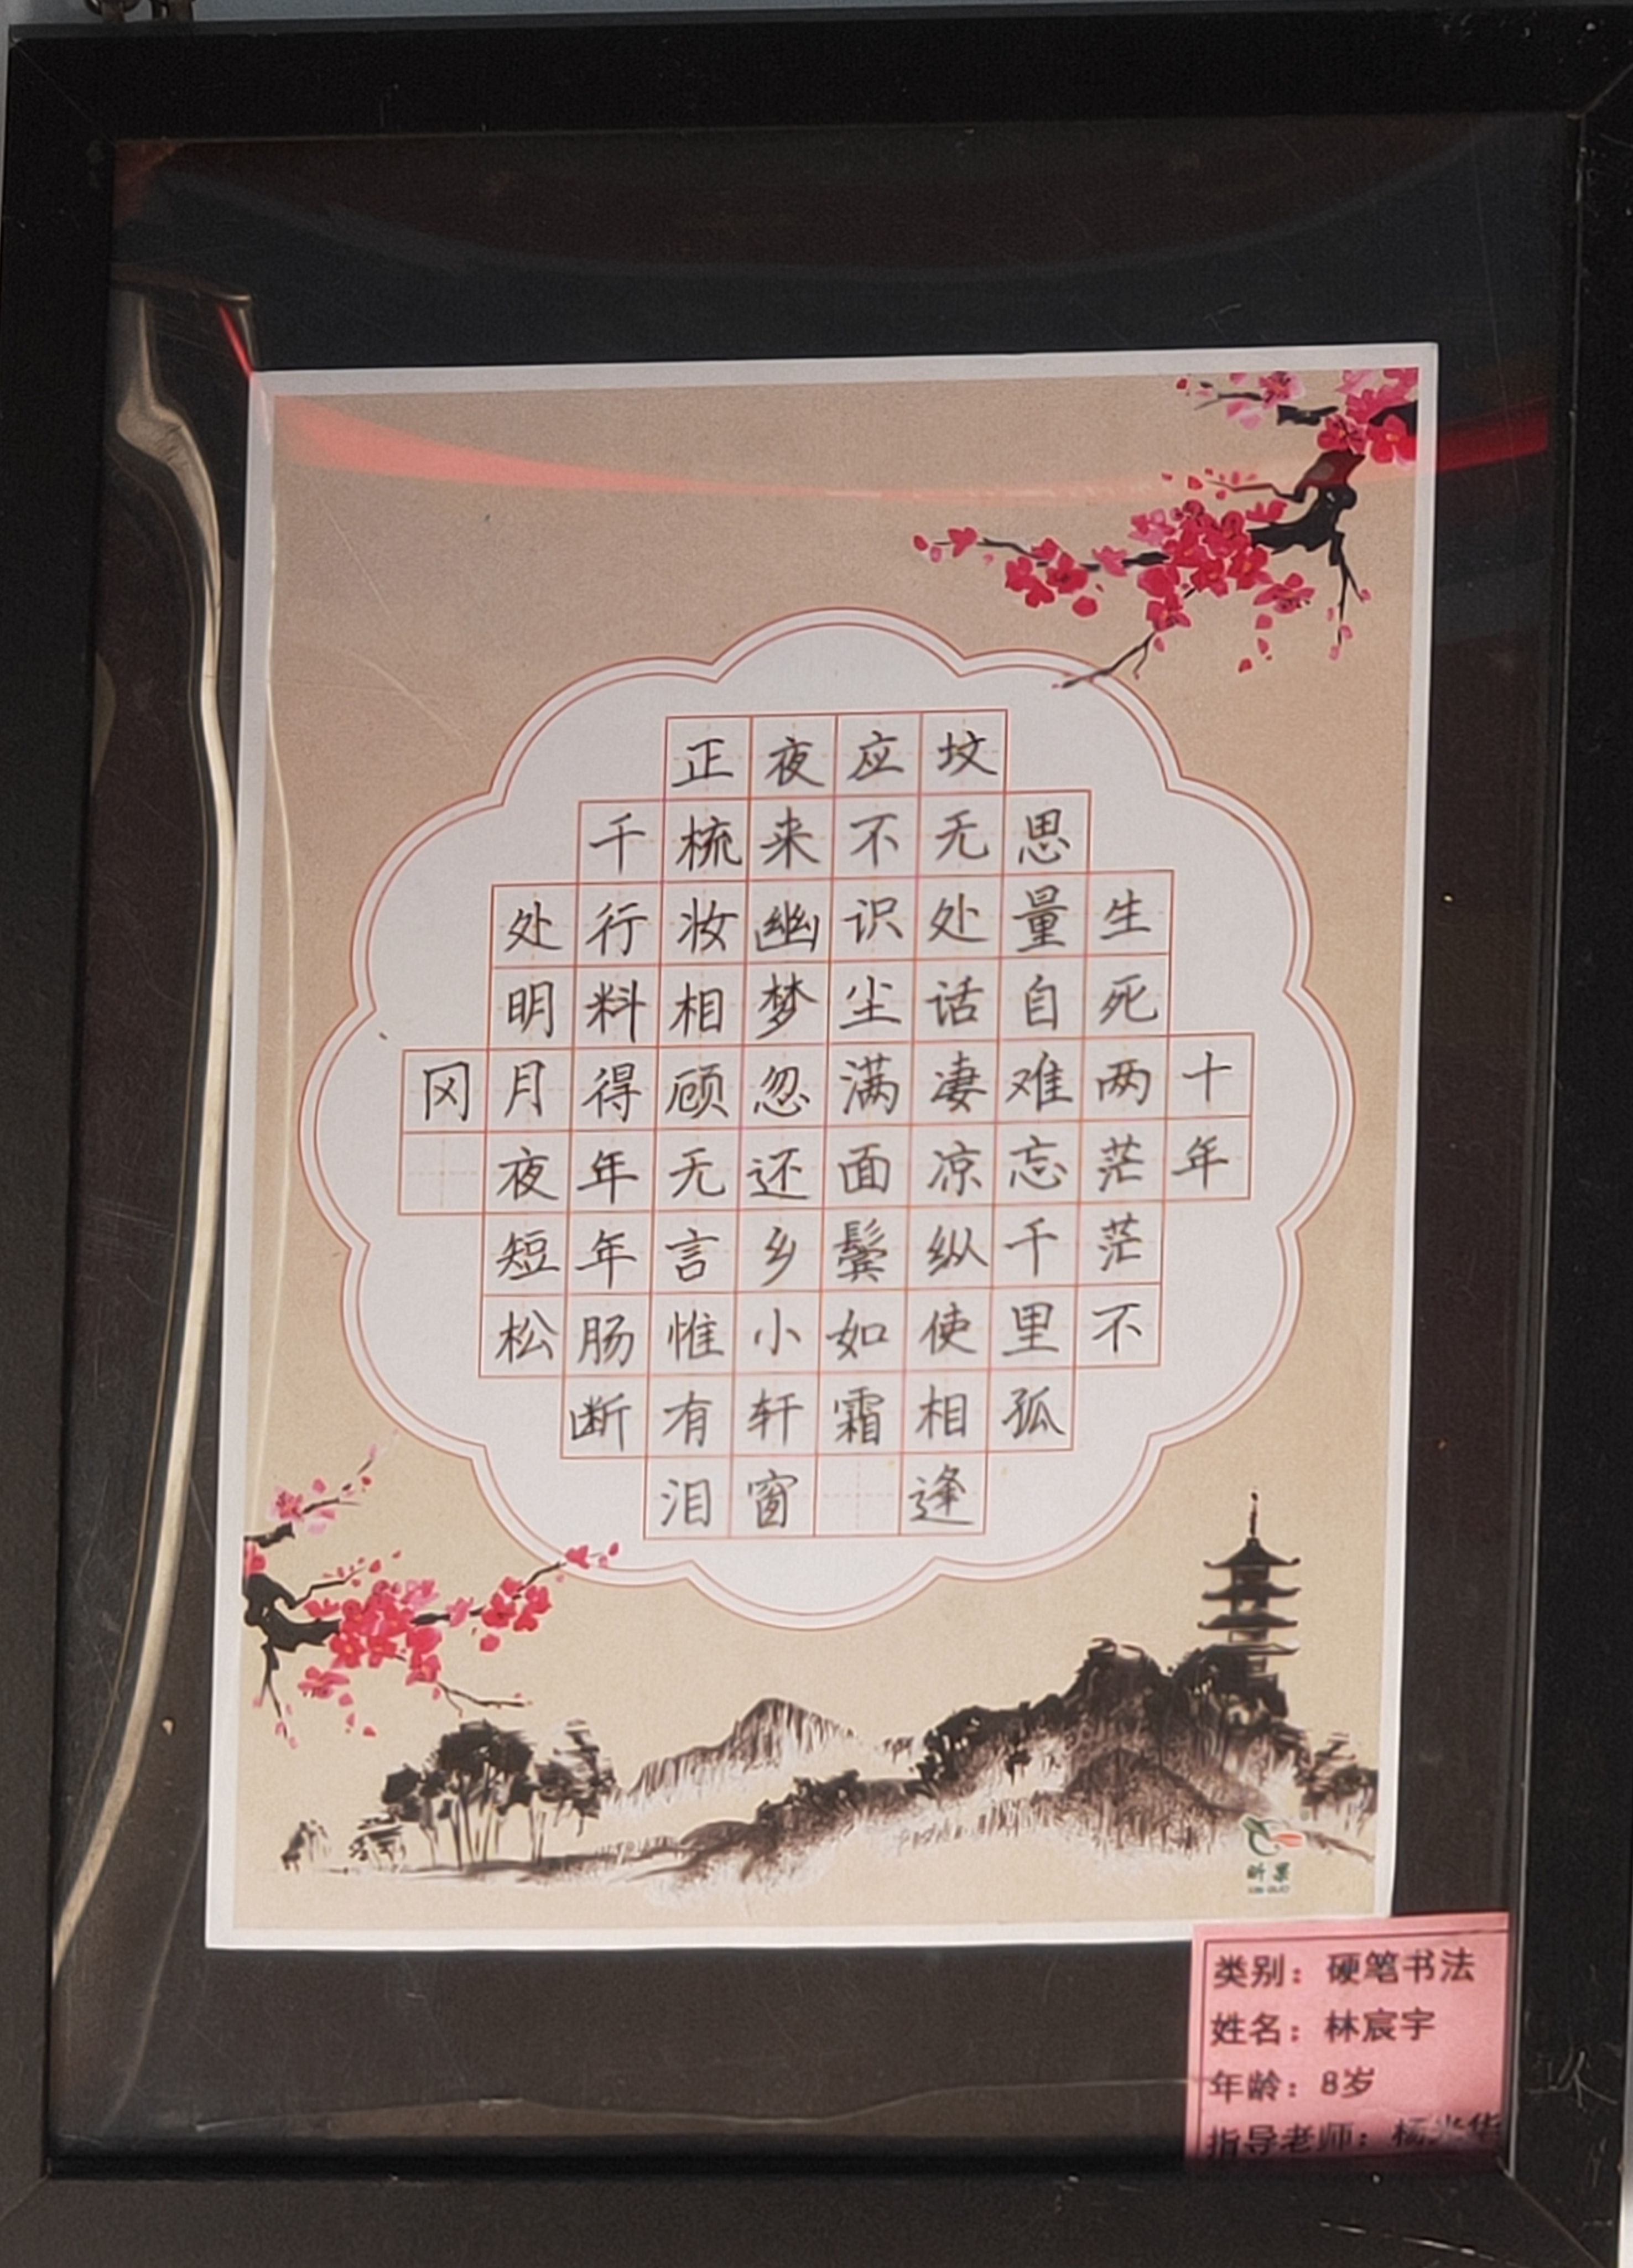 十年
生死两茫茫不
思量自难忘千里孤
坟无处话凄凉纵使相逢
应不识尘满面鬓如霜
夜来幽梦忽还乡小轩窗
正梳妆相顾无言惟有泪
千行料得年年肠断
处明月夜短松
冈
昕果
类别：硬笔书法
姓名：林宸宇
年龄：8岁
指导老师：杨光华